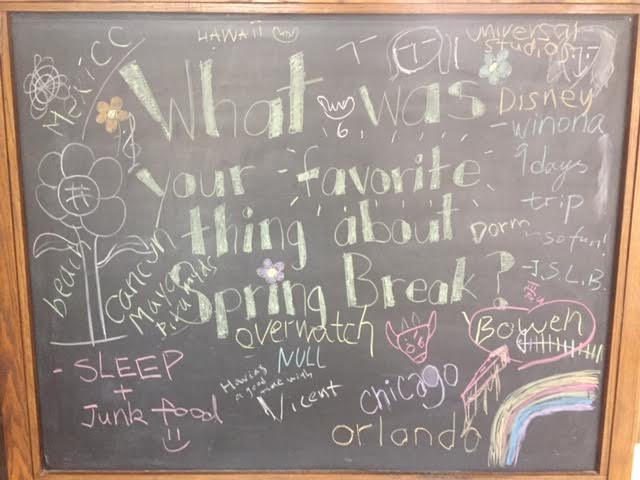 HAWAii
universal
studios
MexiCC
What was
your favorite
thing about
Spring Break?
Disney
-winona
9 days
trip
Dorm
-so fun!
-J.S.L.B.
beach
cancun
Maya
overwatch
NULL
Having
a good
time with
Vicent
Bowen
- SLEEP
+
Junk food
chicago
orlando